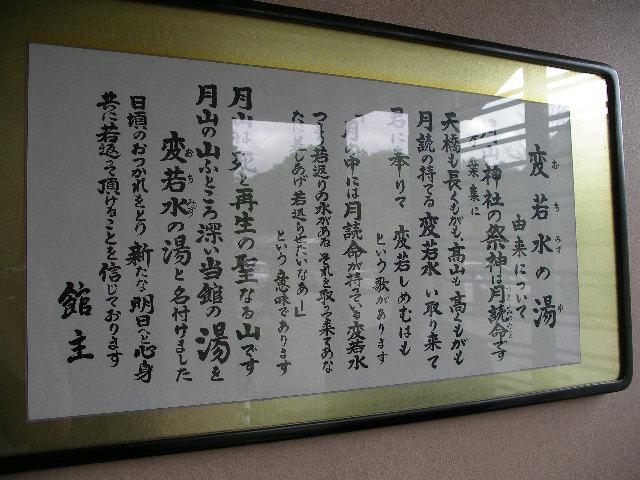 変若水の湯
おちみず ゆ
由来について
月山神社の祭神は月読命です
つきよみのみこと
萬葉集に
天橋も長くもがも、高山も高くもがも
月読の持てる変若水 い取り来て
君に奉りて 変若しめむはも
という歌があります
「月の中には月読命が持っている変若水
つまり若返りの水がある それを取って来てあな
たに差しあげ若返らせたいなあー」
という意味であります
月山は死と再生の聖なる山です
月山の山ふところ深い当館の湯を
変若水の湯と名付けました
おちみず
日頃のおつかれをとり 新たな明日と心身
共に若返って頂けることを信じております
館主